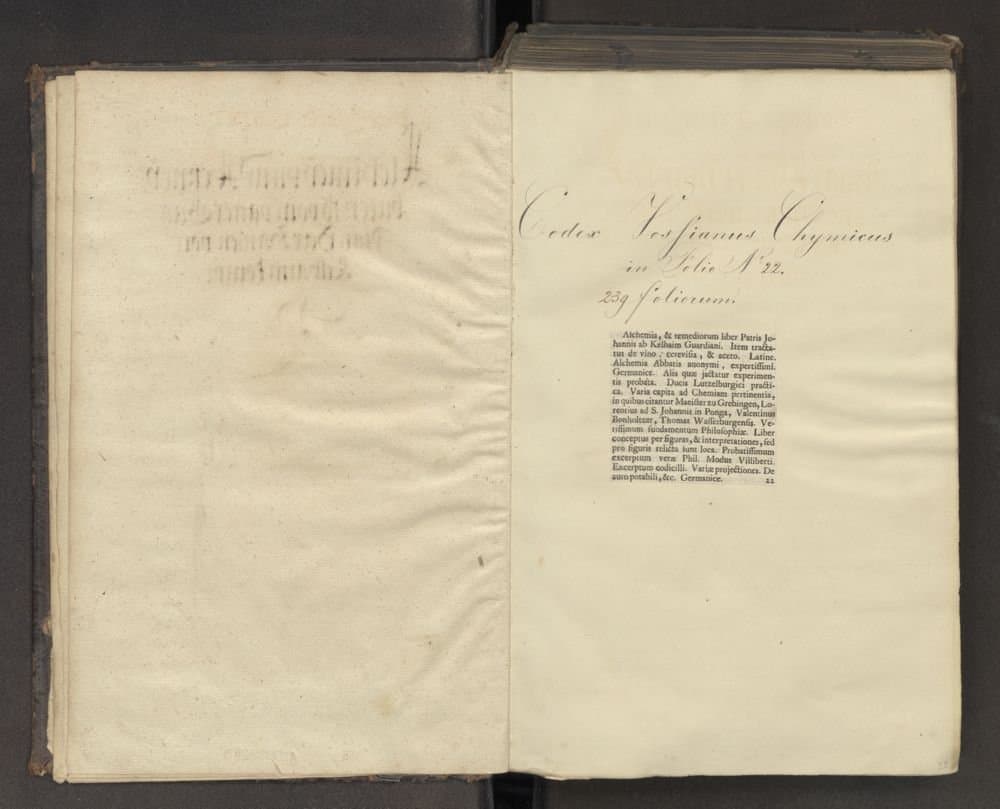 Codex Vossianus Chymicus
in Folio N° 22.
239 foliorum.
Alchemia, & remediorum liber Patris Jo-
hannis ab Kelhaim Guardiani. Item tracta-
tus de vino, cerevisia, & aceto. Latine.
Alchemia Abbatis anonymi, expertissimi.
Germanice. Alia quæ jactatur experimen-
tis probata. Ducis Lutzelburgici practi-
ca. Varia capita ad Chemiam pertinentia,
in quibus citantur Maeister zu Grebingen, Lo-
rentius ad S. Johannis in Ponga, Valentinus
Bonholtzer, Thomas Wasserburgensis. Ve-
rissimum fundamentum Philosophiæ. Liber
conceptus per figuras, & interpretationes, sed
pro figuris relicta sunt loca. Probatissimum
excerptum veræ Phil. Modus Visliberti.
Excerptum codicilli. Variæ projectiones. De
auro potabili, &c. Germanice. 22